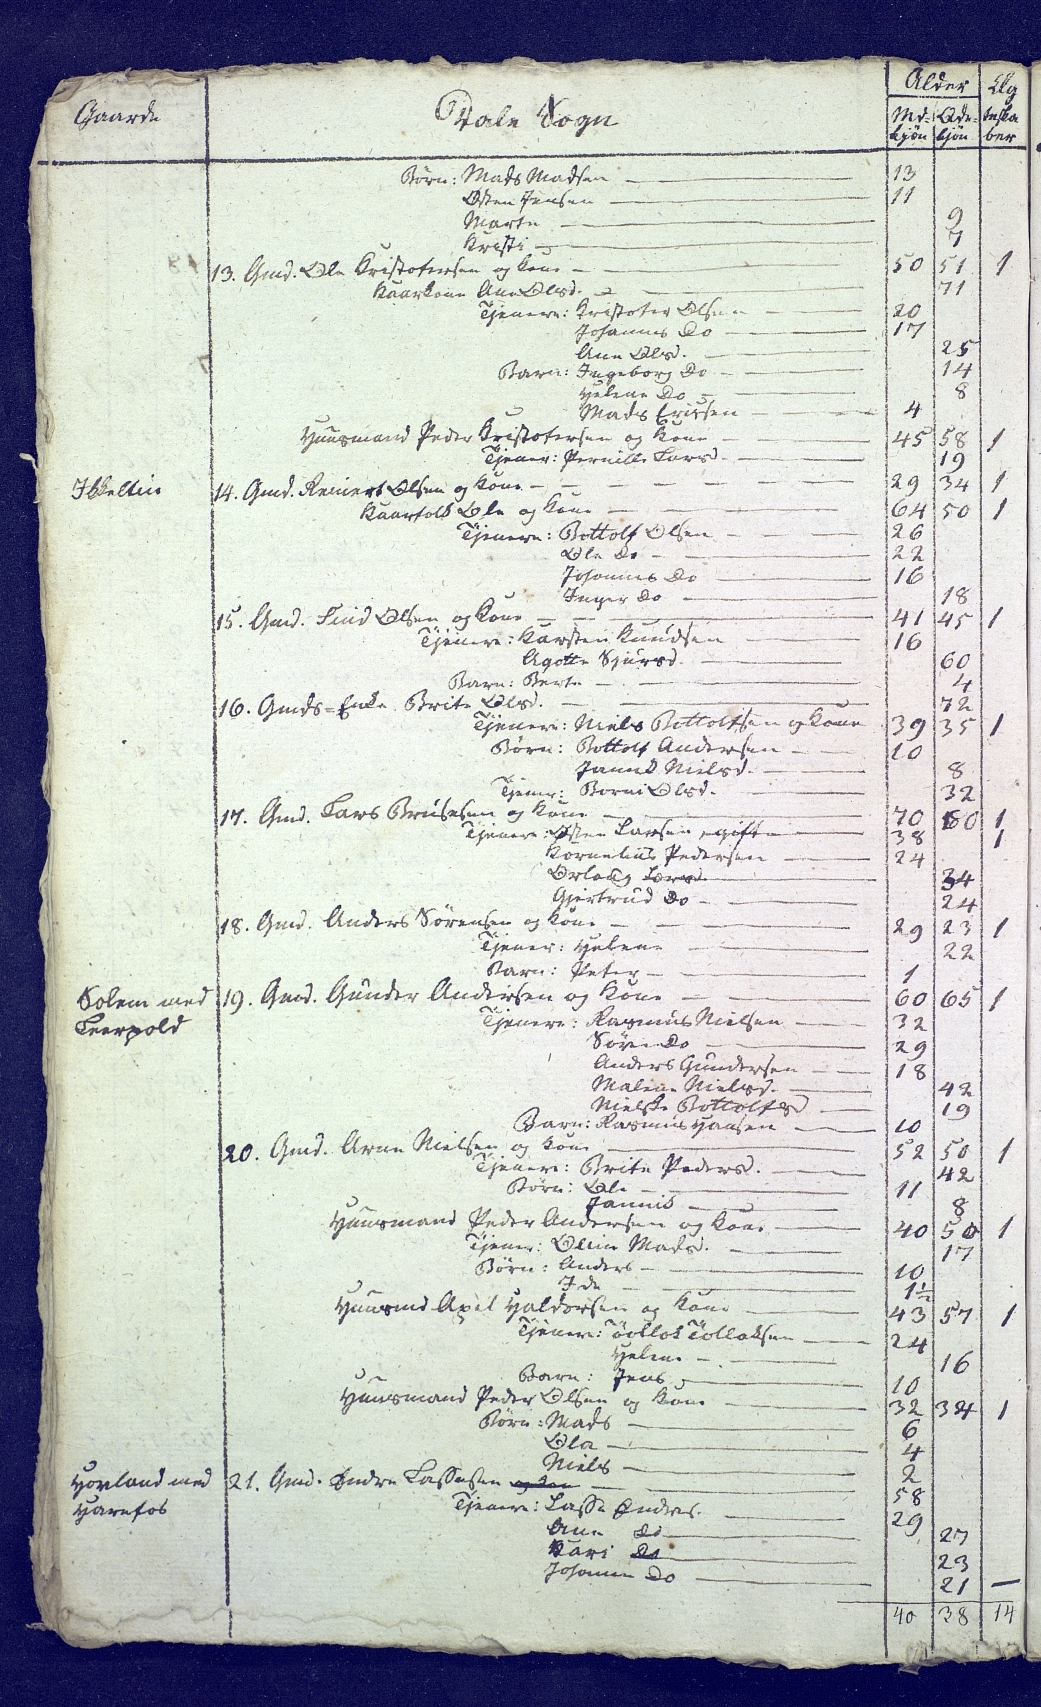 Gaarde Dale Sogn Alder Æg
Md- Qde- teska
kjön kjön ber
Börn: Mads Madsen 13
Østen Jensen 11
Marte 9
Kristi 7
13. Gmd. Ole Kristofersen og Kone 50 51 1
Kaarkone Ane Olsd. 71
Tjenere: Kristofer Olsen 20
Johannes Do 17
Ane Olsd. 25
Barn: Ingeborg Do 14
Helene Do 8
Mads Ericsen 4
Huusmand Peder Kristofersen og Kone 45 58 1
Tjener: Pernille Larsd. 19
14. Gmd. Reinert Olsen og Kone 29 34 1
Kaarfolk Ole og Kone 64 50 1
Tjenere: Bottolf Olsen 26
Ole Do 22
Johannes Do 16
Inger Do 18
15. Gmd. Olsen og Kone 41 45 1
Tjenere: Karsten Knudsen 16
Agotte Sjursd. 60
Barn: Berte 4
16. Gmds-Enke Brite Olsd. 72
Tjenere: Niels Bottolfsen og Kone 39 35 1
Börn: Bottolf Andersen 10
Nielsd. 8
Tjener: Olsd. 32
17. Gmd. Lars og Kone 70 60 1
Tjenere: Østen Larsen, gift 38 1
Kornelius Pedersen 24
Larsd. 34
Gjertrud Do 24
18. Gmd. Anders Sörensen og Kone 29 23 1
Tjener: Helene 22
Barn: Peter 1
Solem med 19. Gmd. Gunder Andersen og Kone 60 65 1
Leerpold Tjenere: Rasmus Nielsen 32
Sören Do 29
Anders Gundersen 18
Malene Nielsd. 42
Nielske Bottolfsd 19
Barn: Rasmus Hansen 10
20. Gmd. Arne Nielsen og Kone 52 50 1
Tjenere: Brite Pedersd. 42
Börn: Ole 11
8
Huusmand Peder Andersen og Kone 40 50 1
Tjener: Oline Madsd. 17
Börn: Anders 10
Ide 1½
Huusmd Axel Haldorsen og Kone 43 57 1
Tjenere: Tollok Tolloksen 24
Helene 16
Barn: Jens 10
Huusmand Peder Olsen og Kone 32 34 1
Börn: Mads 6
Ole 4
Niels 2
Hovland med 21. Gmd. Endre Lassesen 58
Harefos Tjenere: Lasse Endres. 29
Ane Do 27
Kari Do 23
Johanne Do 21
40 38 14